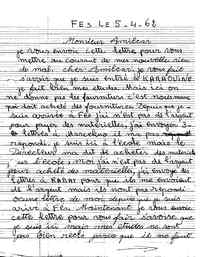 FES LE 5-4-68
Monsieur Amilcar
je vous envoie cette lettre pour vous
mettre au courant de mes nouvelles rien
de mal. cher Amilcar je vous fais
savoir que je suis entré le KARAOUINE
je fait bien mes études. Mais ici on
ne donne pas les fournitures c'est nous même
qui doit acheté des fournitures Depuis que je
suis arrivé à Fès j'ai n'est pas de l'argent
pour payer des matérielles, j'ai envoyé des
lettres à il ne m'a pas
repondu je suis ici à l'école mais le
Directeur me dit de acheté des
je suis l'école moi j'ai n'est pas de l'argent
pour acheté des matérielles, j'ai envoyé des
lettres à RABAT pour que ils me envoient
de l'argent mais ils sont pas repondu
aucune lettre de moi depuis que je suis
arrivé à Fès Maintenant je vous envoie
cette lettre pour vous faire savoir que
je suis ici mais mes études ne sont
pas bien réele parce que il me faut